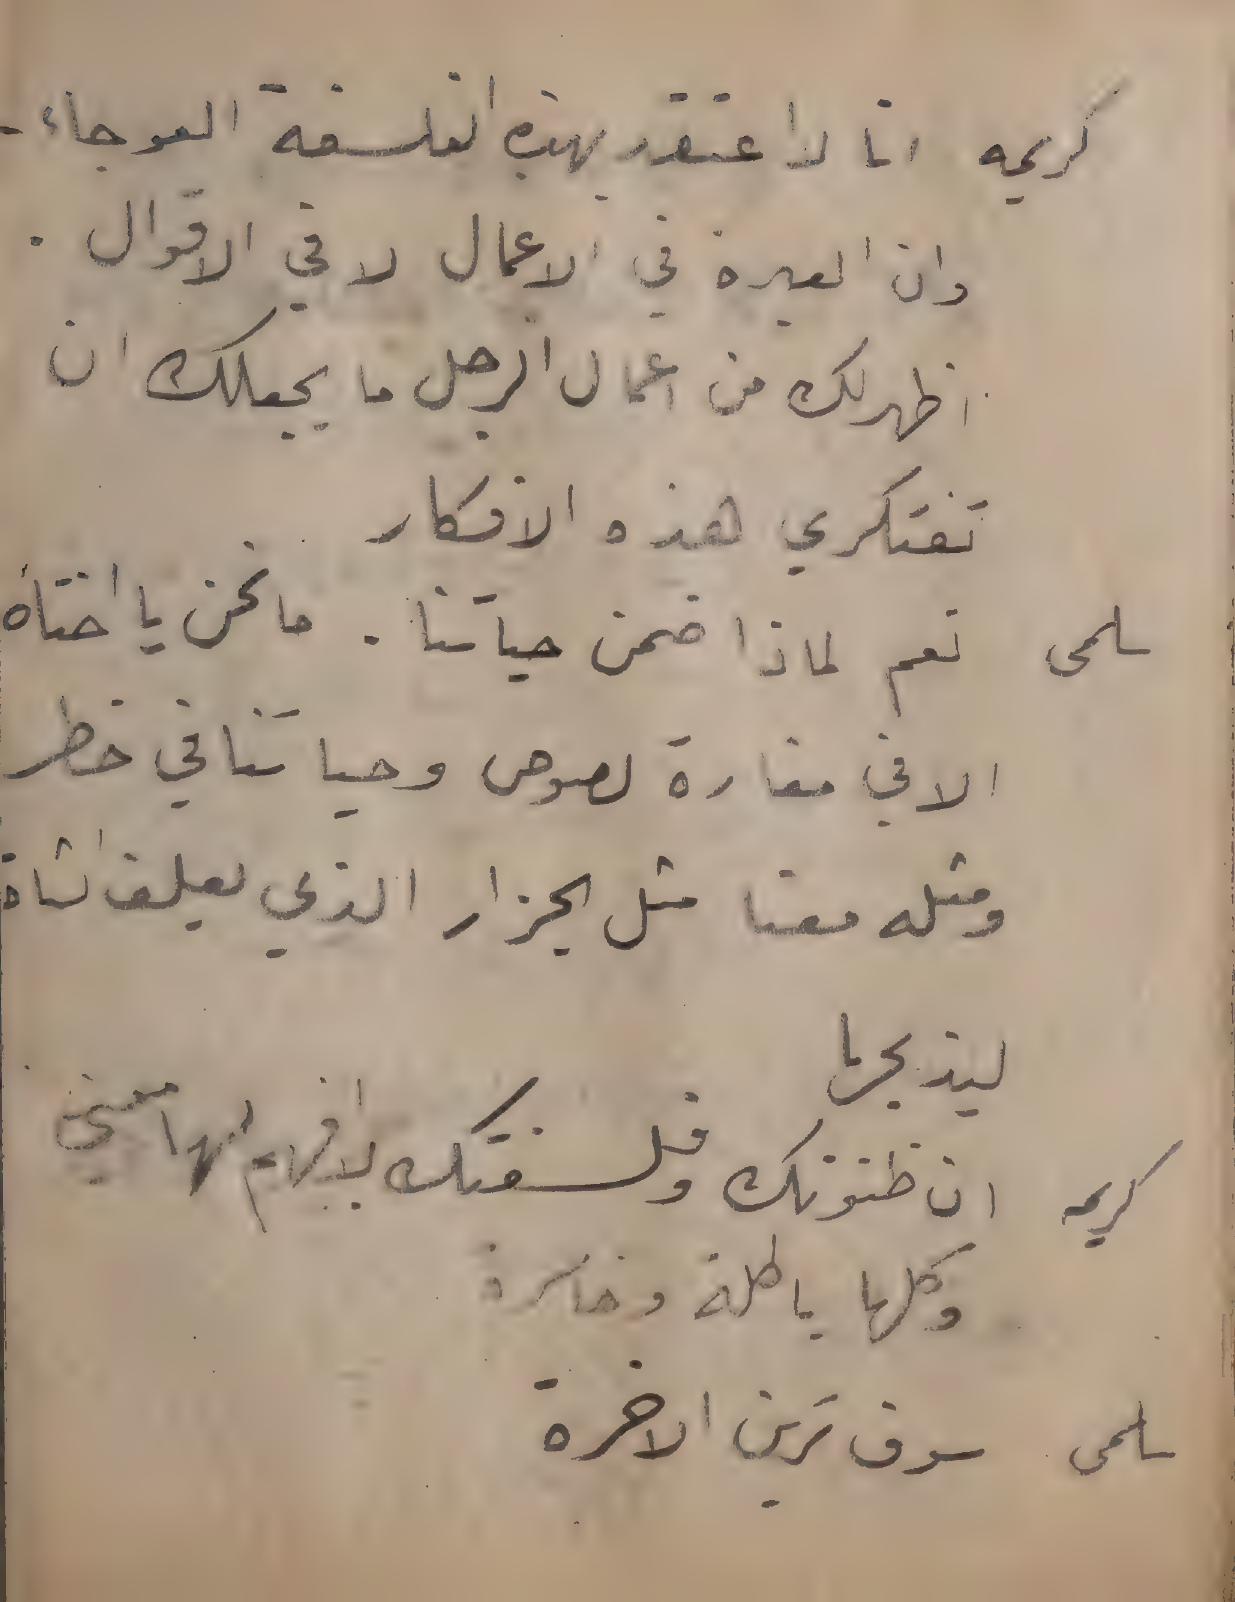 كريمه انا لا اعتقد بهذه الفلسفة العوجاء -
وان العبرة في الاعمال لا في الاقوال .
اظهر لك من اعمال الرجل ما يجعلك ان
تفتكري هذه الافكار
سلمى نعم لماذا ضمن حياتنا . ما نحن يا اختاه
الا في مغارة لصوص وحياتنا في خطر
ومثله معنا مثل الجزار الذي يعلف الشاة
ليذبحها
كريمه ان ظنونك وفلسفتك لا افهم لها معنى
وكلها باطلة وخاسرة
سلمى سوف ترين الاخرة